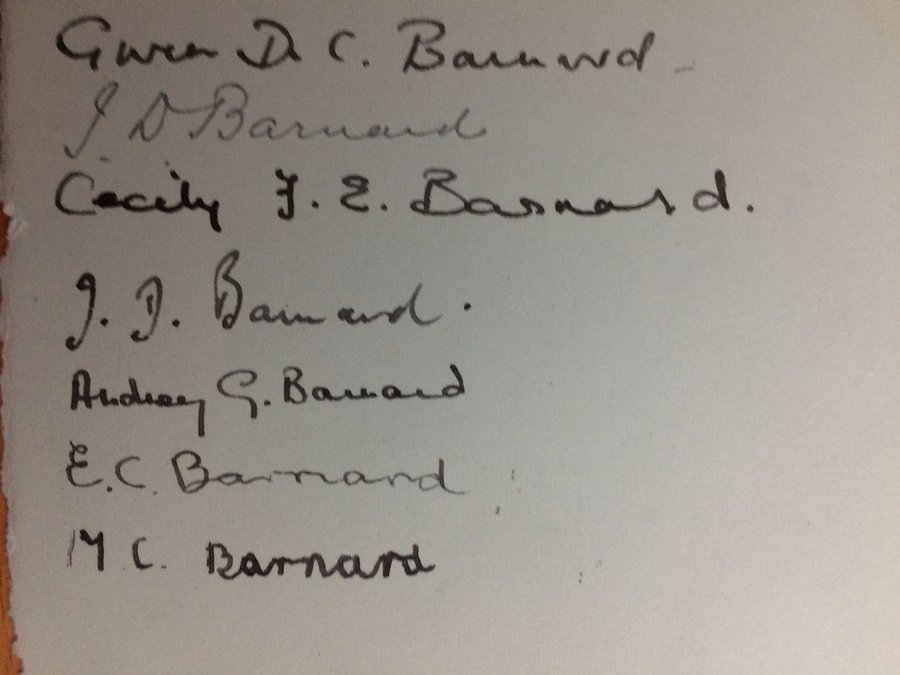 Gwen D. C. Barnard
J. D Barnard
Cecily F. E. Barnard.
J. D. Barnard.
Audrey G. Barnard
E. C. Barnard
M C. Barnard